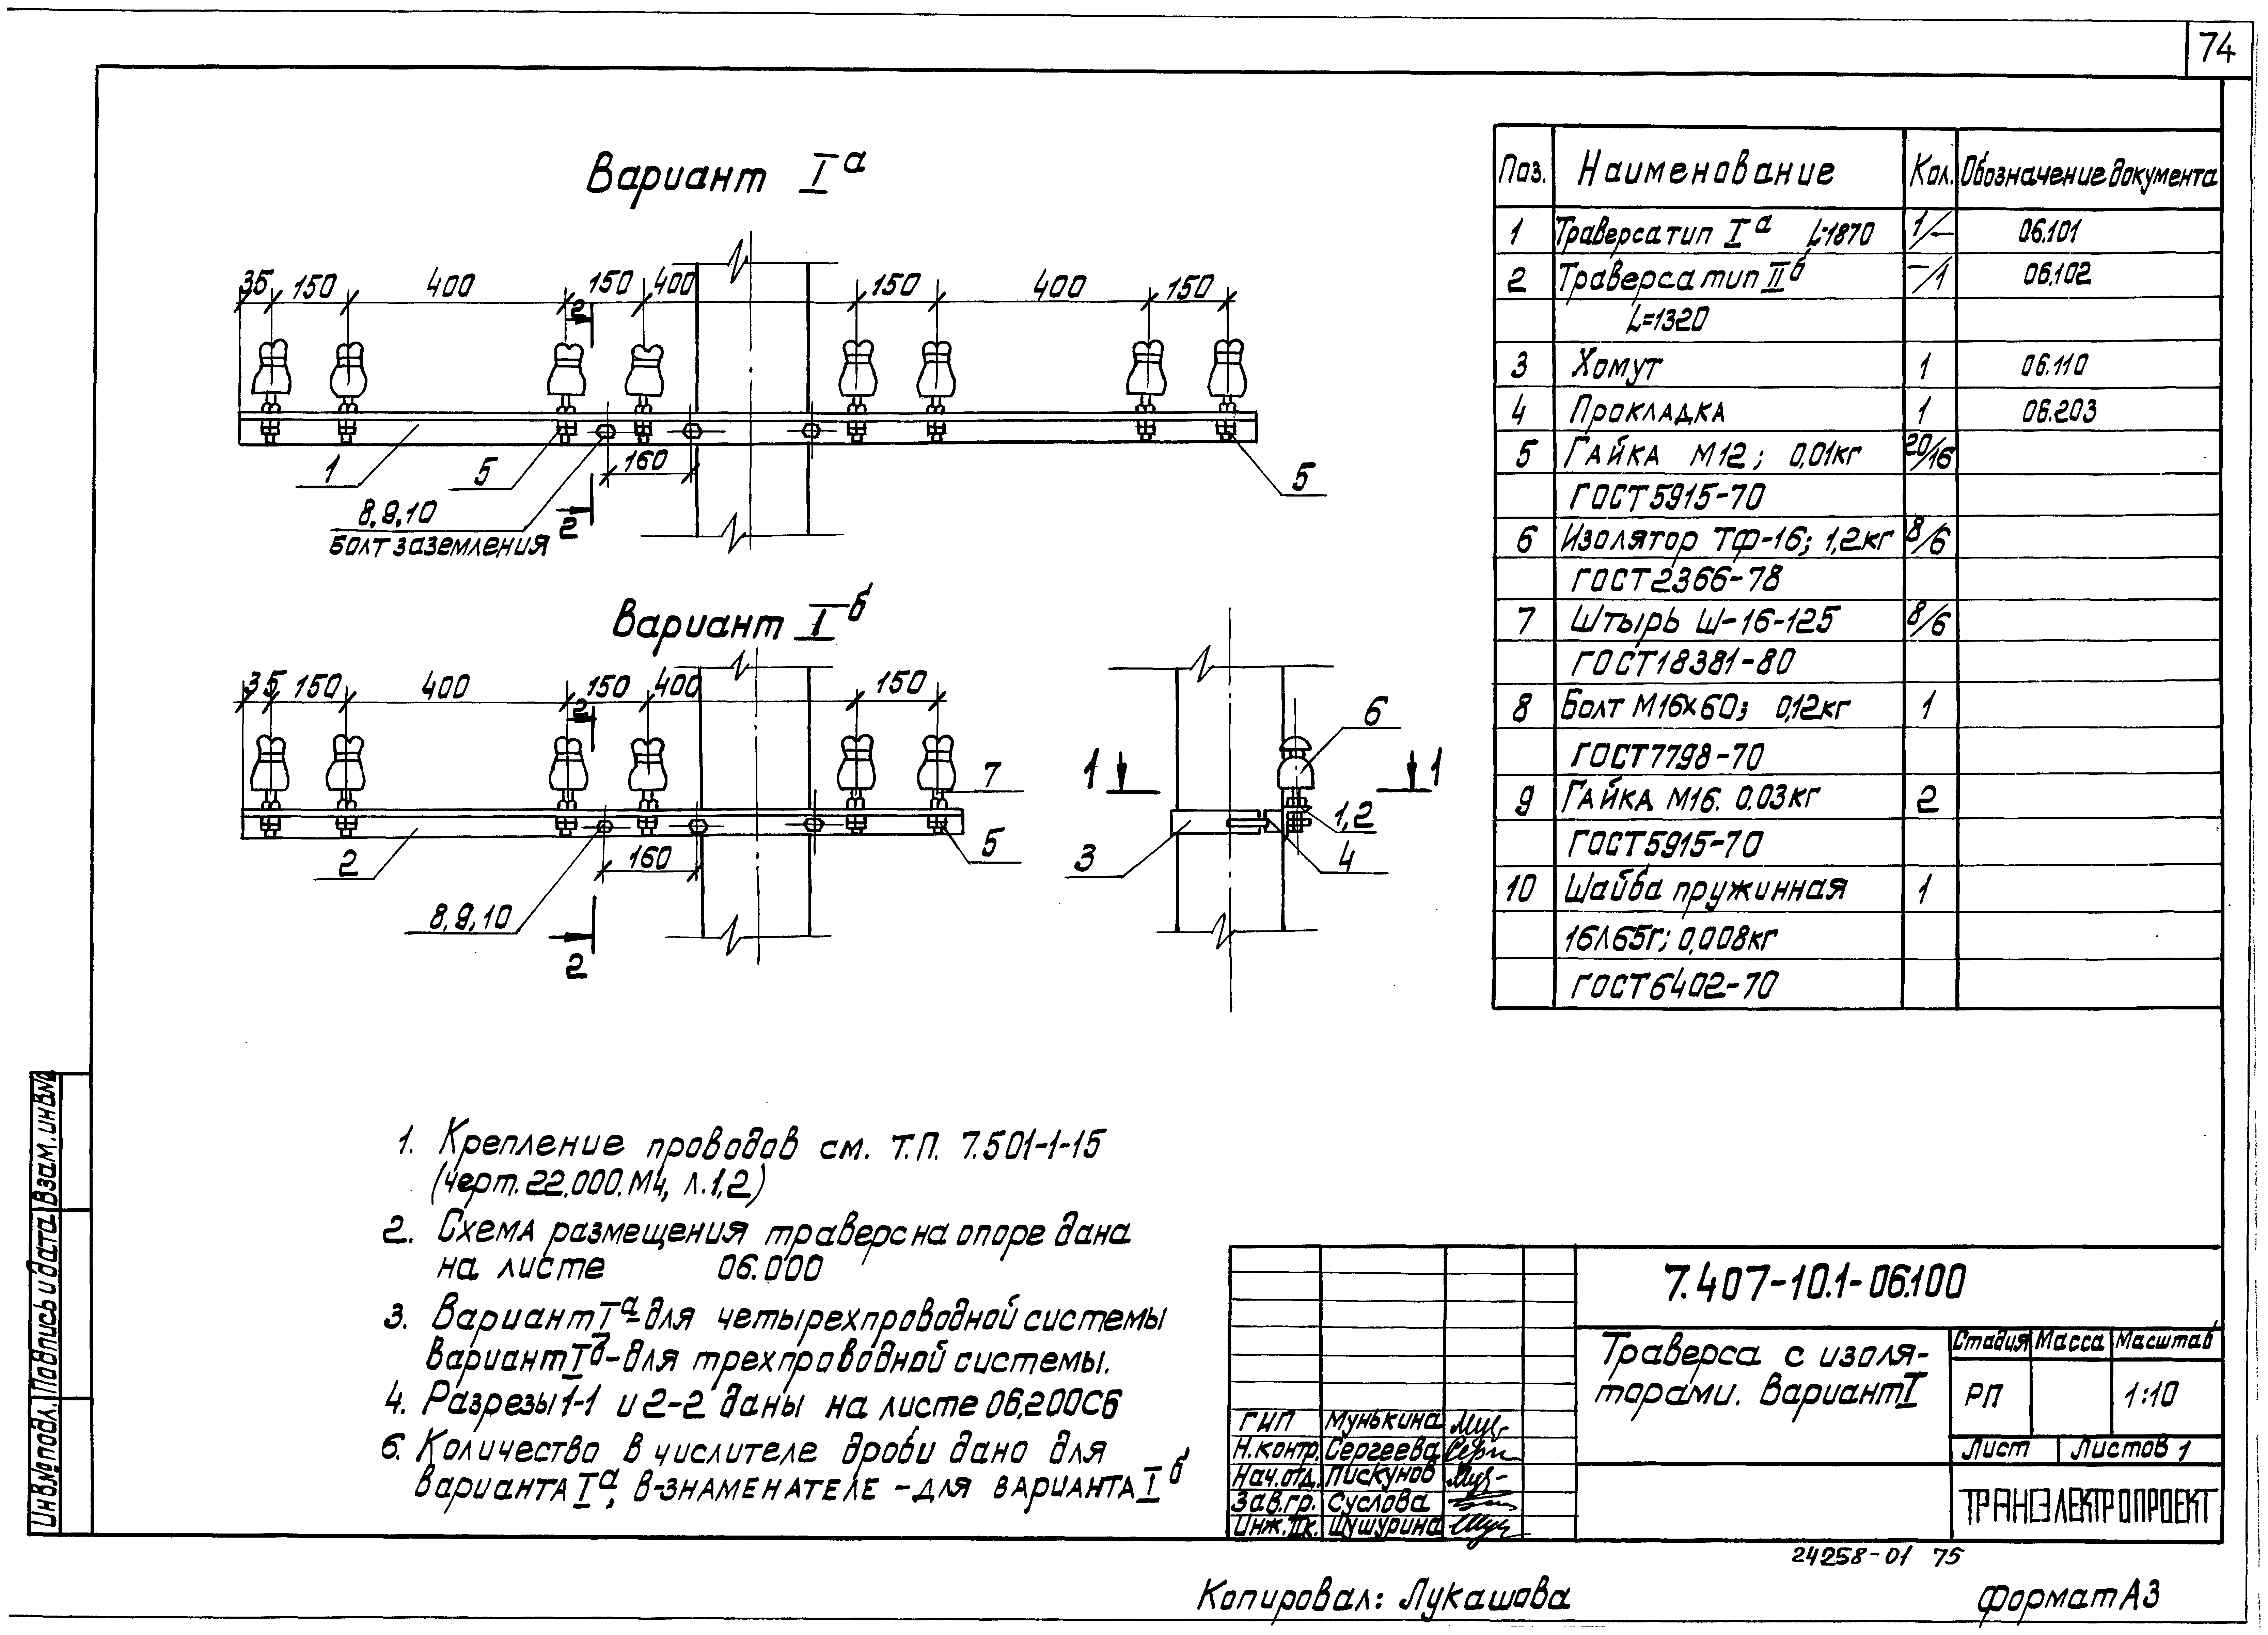 74
Вариант Iа
35 150 400 150 400 150 400 150
2
160
1
5
5
8,9,10
Болт заземления
2
Вариант Iб
35 150 400 150 400 150
2
7
160
2
5
8,9,10
2
6
1 1
1,2
3
4
Поз. Наименование Кол. Обозначение документа
1 Траверса тип Iа L-1870 1/— 06.101
2 Траверса тип IIб —/1 06.102
L=1320
3 Хомут 1 06.110
4 Прокладка 1 06.203
5 Гайка М12; 0,01кг 20/16
ГОСТ 5915-70
6 Изолятор ТФ-16; 1,2кг 8/6
ГОСТ 2366-78
7 Штырь Ш-16-125 8/6
ГОСТ 18381-80
8 Болт М16х60; 0,12кг 1
ГОСТ 7798-70
9 Гайка М16. 0.03кг 2
ГОСТ 5915-70
10 Шайба пружинная 1
16Л65Г; 0,008кг
ГОСТ 6402-70
1. Крепление проводов см. т.п. 7.501-1-15
(черт. 22.000.М4, л.1,2)
2. Схема размещения траверс на опоре дана
на листе 06.000
3. Вариант Iа-для четырехпроводной системы
Вариант Iб-для трехпроводной системы.
4. Разрезы 1-1 и 2-2 даны на листе 06.200СБ
6. Количество в числителе дроби дано для
варианта Iа, в-знаменателе - для варианта Iб
Инв.№ подл. Подпись и дата Взам.инв№
7.407-10.1-06.100
Траверса с изоля-
торами. Вариант I
Стадия Масса Масштаб
РП 1:10
Лист Листов 1
ТРАНСЭЛЕКТРОПРОЕКТ
ГИП Мунькина
Н.контр. Сергеева
Нач.отд. Пискунов
Зав.гр. Суслова
Инж.IIк. Шушурина
24258-01 75
Копировал: Лукашова
Формат А3